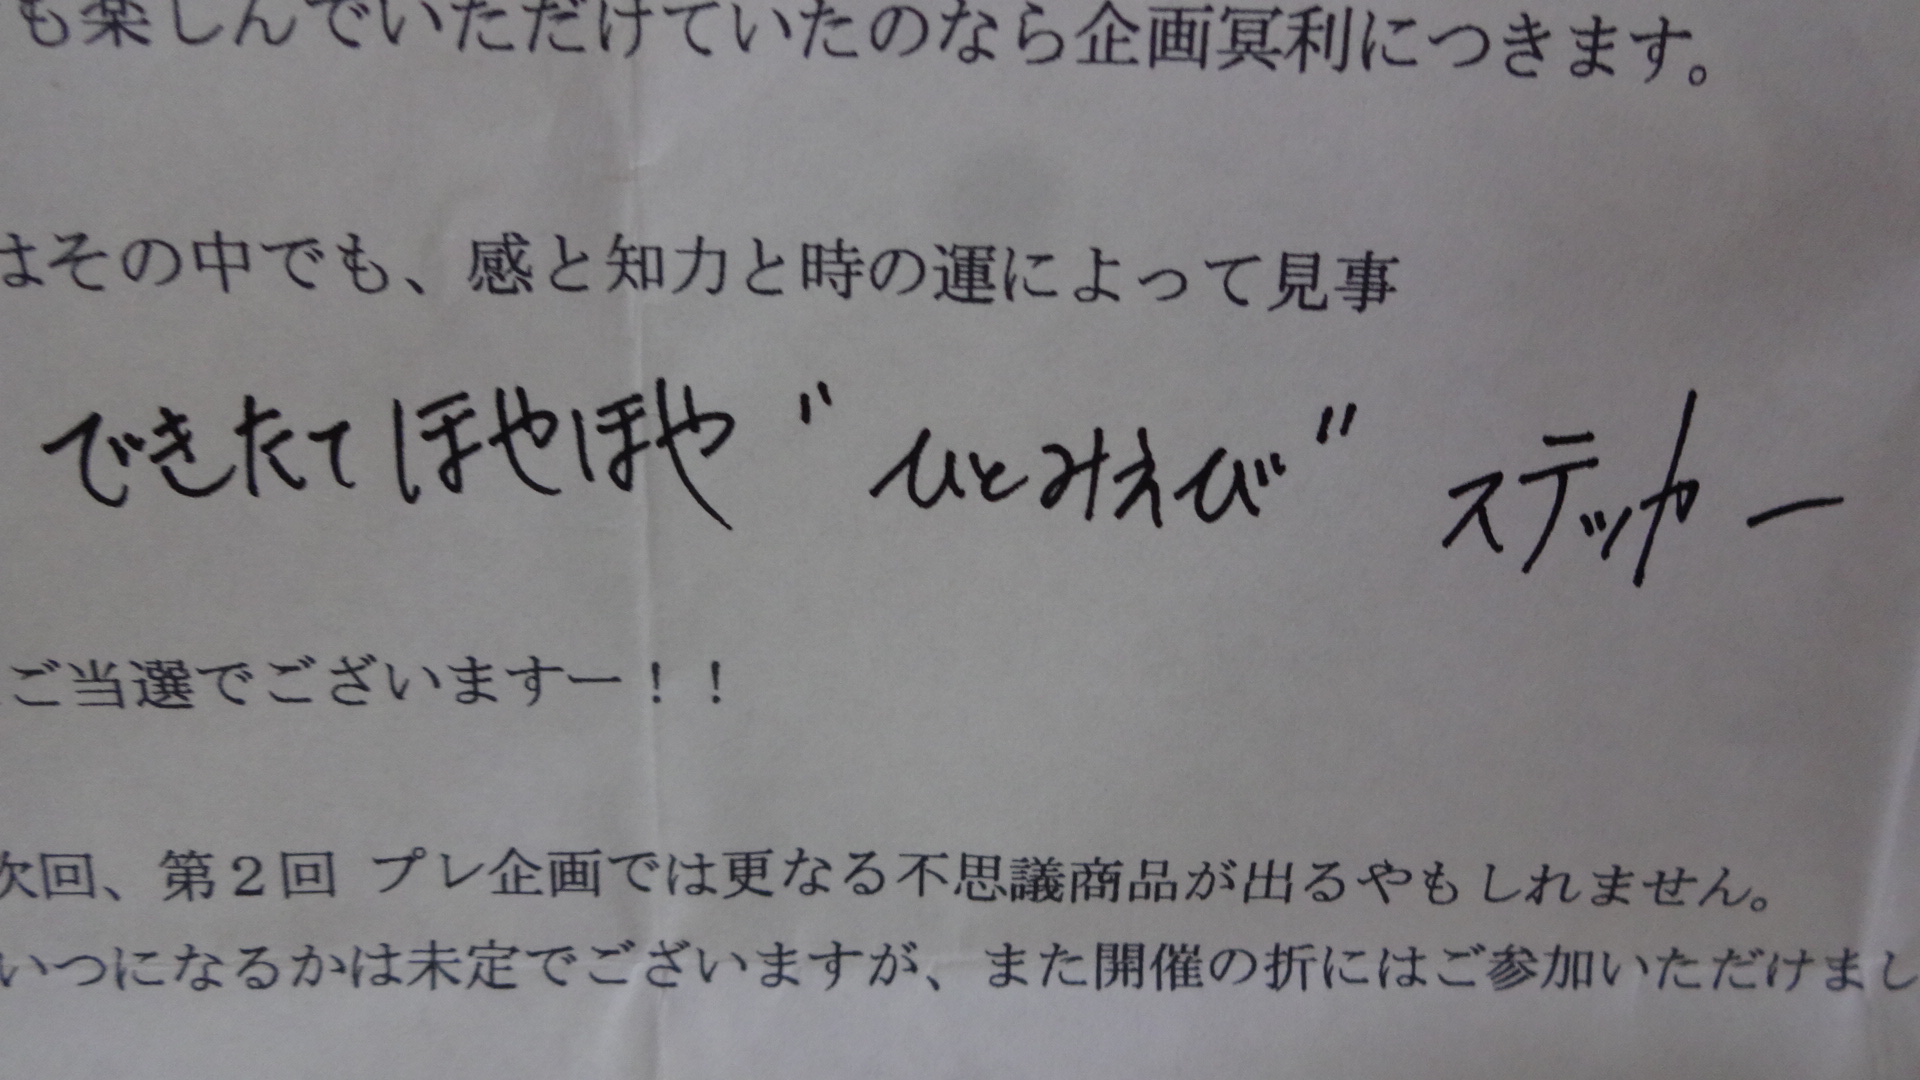 も楽しんでいただけていたのなら企画冥利につきます。
はその中でも、感と知力と時の運によって見事
できたてほやほや"ひとみえび"ステッカー
ご当選でございますー！！
次回、第２回 プレ企画では更なる不思議商品が出るやもしれません。
いつになるかは未定でございますが、また開催の折にはご参加いただけまし